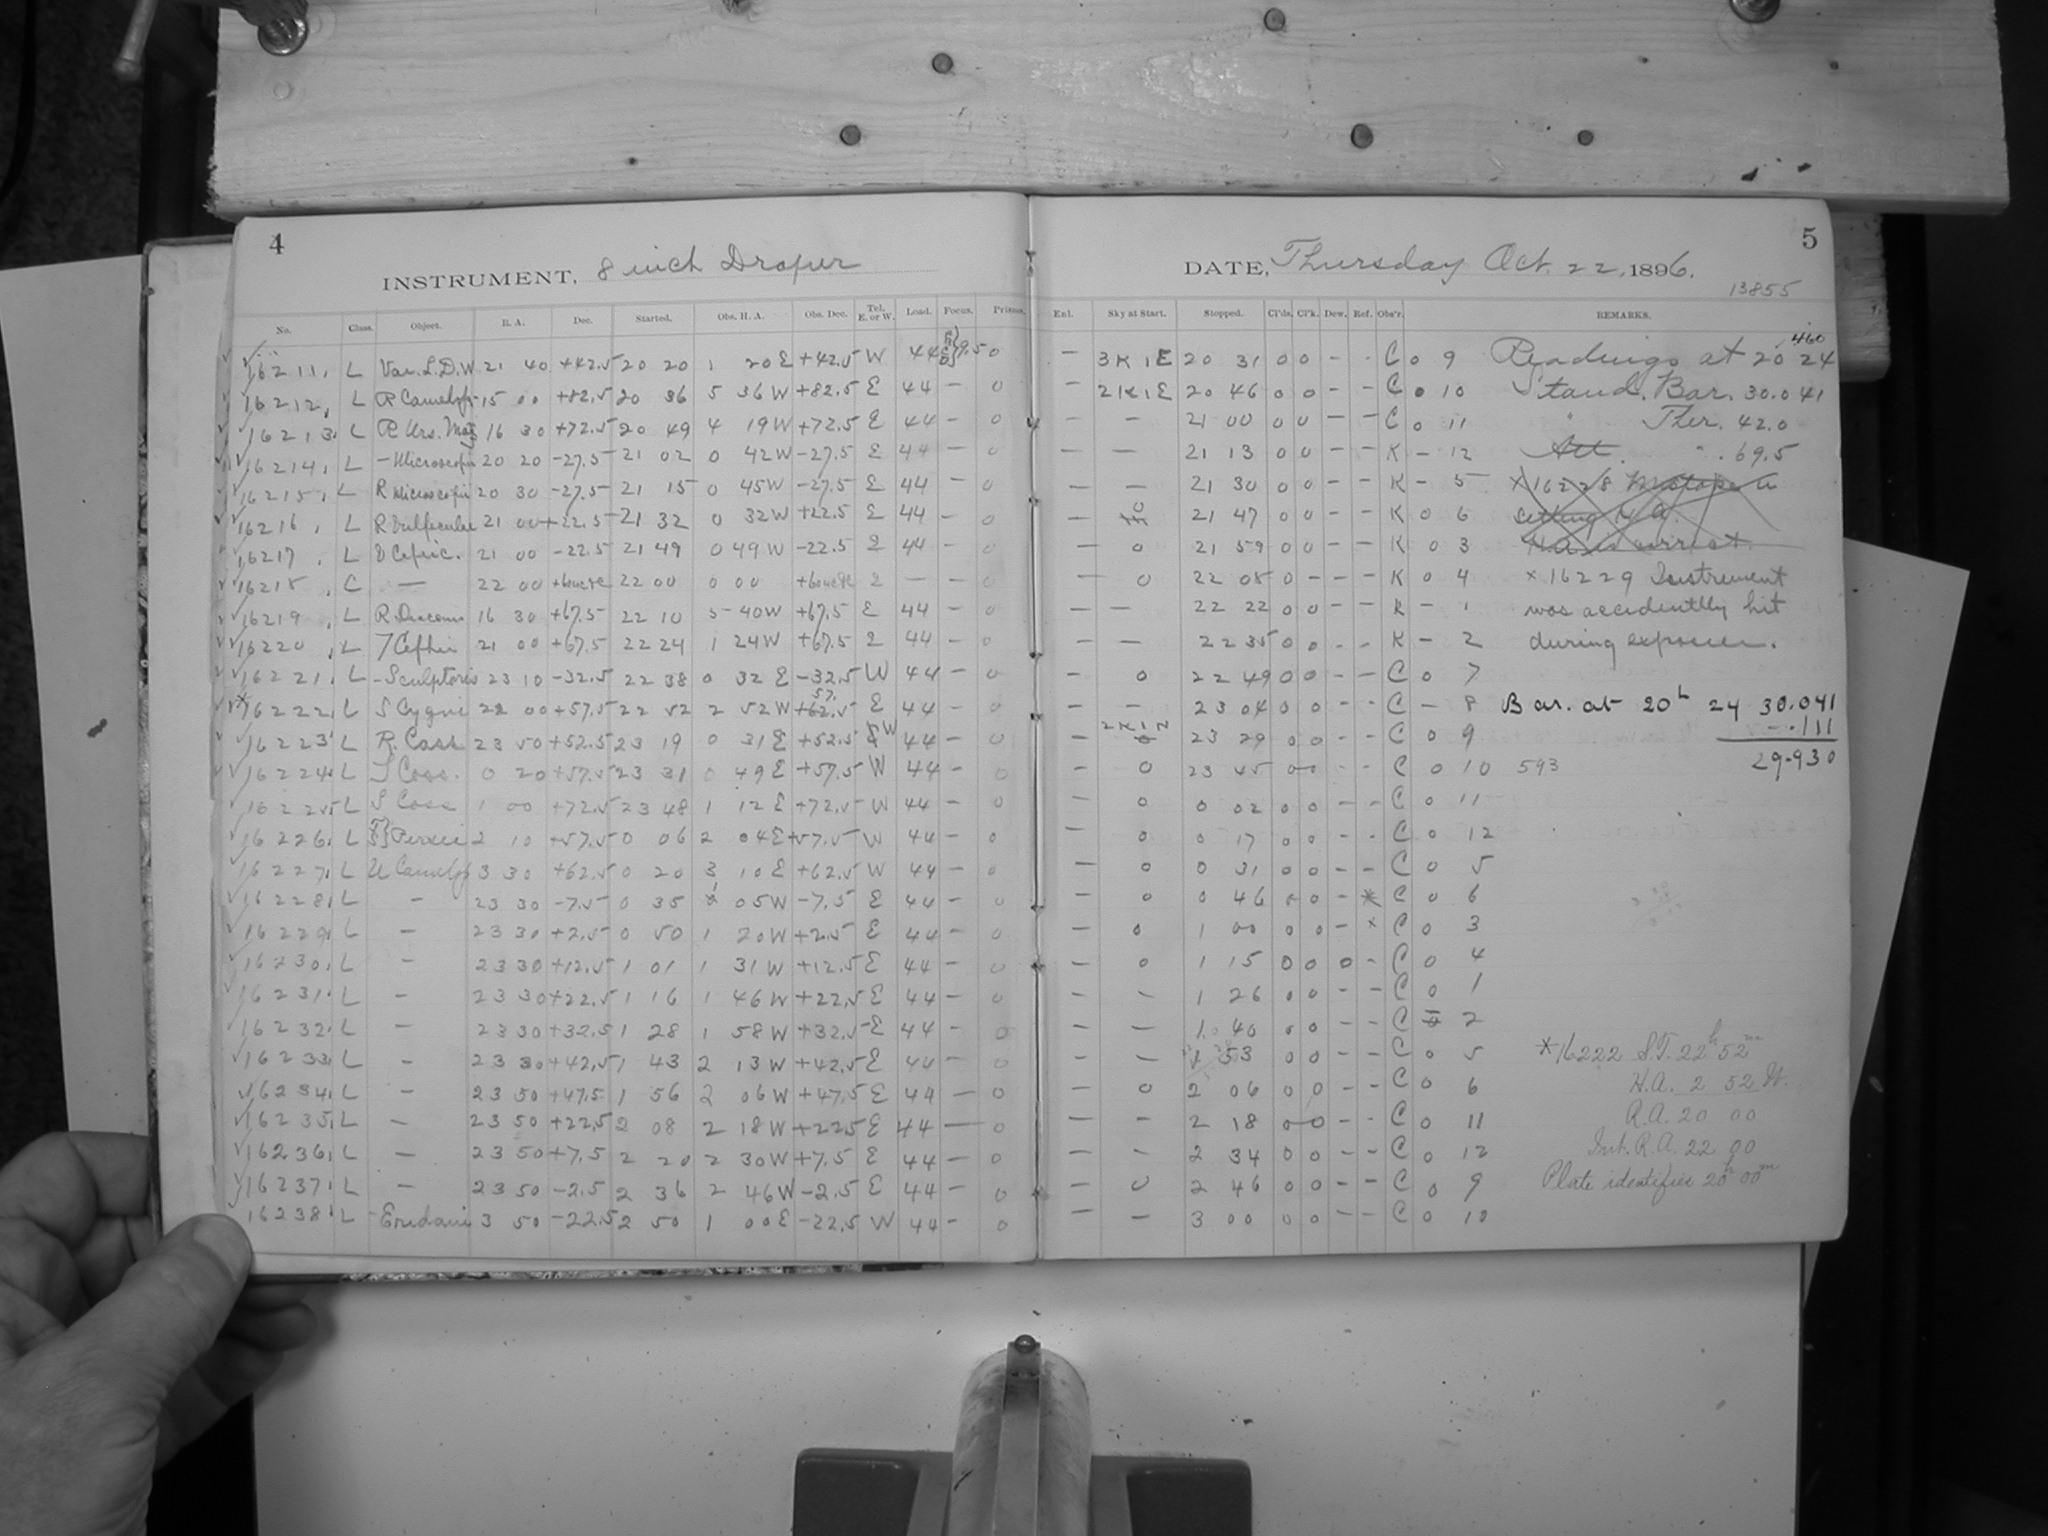 4
INSTRUMENT, 8 inch Draper
No. Class. Object. R. A. Dec. Started. Obs. H. A. Obs. Dec. Tel. E. or W. Load. Focus. Prisms.
16211. L Var. L.D.W 21 40 +42.5 20 20 1 20 E +42.5 W 44 9.50 0
16212, L R Camelop 15 00 +82.5 20 36 5 36 W +82.5 E 44 — 0
16213. L R Urs. Maj 16 30 +72.5 20 49 4 19 W +72.5 E 44 — 0
16214, L — Microscopii 20 20 -27.5 21 02 0 42 W -27.5 E 44 — 0
16215, L R Microscopii 20 30 -27.5 21 15 0 45 W -27.5 E 44 — 0
16216, L R Vulpeculae 21 00 +22.5 21 32 0 32 W +22.5 E 44 — 0
16217, L 21 00 -22.5 21 49 0 49 W -22.5 E 44 — 0
16218, C — 22 00 22 00 0 00 — —
16219, L R Draconis 16 30 +67.5 22 10 5 40 W +67.5 E 44 — 0
16220, L T Cephei 21 00 +67.5 22 24 1 24 W +67.5 E 44 — 0
16221. L - Sculptoris 23 10 -32.5 22 38 0 32 E -32.5 W 44 — 0
*16222. L S Cygni 22 00 +57.5 22 52 2 52 W +62.5 57. E 44 — 0
16223 L R. Cass 23 50 +52.5 23 19 0 31 E +52.5 W 44 — 0
16224. L T Cass. 0 20 +57.5 23 31 0 49 E +57.5 W 44 — 0
16225 L S Cass 1 00 +72.5 23 48 1 12 E +72.5 W 44 — 0
16226. L Persei 2 10 +57.5 0 06 2 04 E +57.5 W 44 — 0
16227. L U Camelop 3 30 +62.5 0 20 3 10 E +62.5 W 44 — 0
16228. L — 23 30 -7.5 0 35 1 05 W -7.5 E 44 — 0
16229. L — 23 30 +2.5 0 50 1 20 W +2.5 E 44 — 0
16230. L — 23 30 +12.5 1 01 1 31 W +12.5 E 44 — 0
16231. L — 23 30 +22.5 1 16 1 46 W +22.5 E 44 — 0
16232. L — 23 30 +32.5 1 28 1 58 W +32.5 E 44 — 0
16233. L — 23 30 +42.5 1 43 2 13 W +42.5 E 44 — 0
16234. L — 23 50 +47.5 1 56 2 06 W +47.5 E 44 — 0
16235. L — 23 50 +22.5 2 08 2 18 W +22.5 E 44 — 0
16236. L — 23 50 +7.5 2 20 2 30 W +7.5 E 44 — 0
16237. L — 23 50 -2.5 2 36 2 46 W -2.5 E 44 — 0
16238. L - Eridani 3 50 -22.5 2 50 1 00 E -22.5 W 44 — 0
5
DATE, Thursday Oct. 22, 1896.
13855
Enl. Sky at Start. Stopped. Cl'ds. Cl'k. Dew. Ref. Obs'r. REMARKS.
— 3 K 1 E 20 31 0 0 - - C 0 9 Readings at 20 24
— 2 K 1 E 20 46 0 0 - - C 0 10 Stand. Bar. 30.041
— — 21 00 0 0 - - C 0 11 " Ther. 42.0
— — 21 13 0 0 - - K - 12 Att. " . 69.5
— — 21 30 0 0 - - K - 5 x 16228 Mistake in
— 0 21 47 0 0 - - K 0 6 setting H A.
— 0 21 59 0 0 - - K 0 3 H.A. is correct.
— 0 22 05 0 - - - K 0 4 x 16229 Instrument
— — 22 22 0 0 - - K - 1 was accidentlly hit
— — 22 35 0 0 - - K - 2 during exposure.
— 0 22 49 0 0 - - C 0 7
— — 23 04 0 0 - - C - 8 Bar. at 20h 24 30.041
— 2 K 1 N 0 23 29 0 0 - - C 0 9 -.111
— 0 23 45 0 0 - - C 0 10 593 29.930
— 0 0 02 0 0 - - C 0 11
— 0 0 17 0 0 - - C 0 12
— 0 0 31 0 0 - - C 0 5
— 0 0 46 0 0 - * C 0 6
— 0 1 00 0 0 - x C 0 3
— 0 1 15 0 0 0 - C 0 4
— — 1 26 0 0 - - C 0 1
— — 1 40 0 0 - - C 0 2
— — 1 53 0 0 - - C 0 5 *16222 S.T. 22h 52m
— 0 2 06 0 0 - - C 0 6 H.A. 2 52 W.
— — 2 18 0 0 - - C 0 11 R.A. 20 00
— — 2 34 0 0 - - C 0 12 Int. R.A. 22 00
— 0 2 46 0 0 - - C 0 9 Plate identifies 20h 00m
— — 3 00 0 0 - - C 0 10